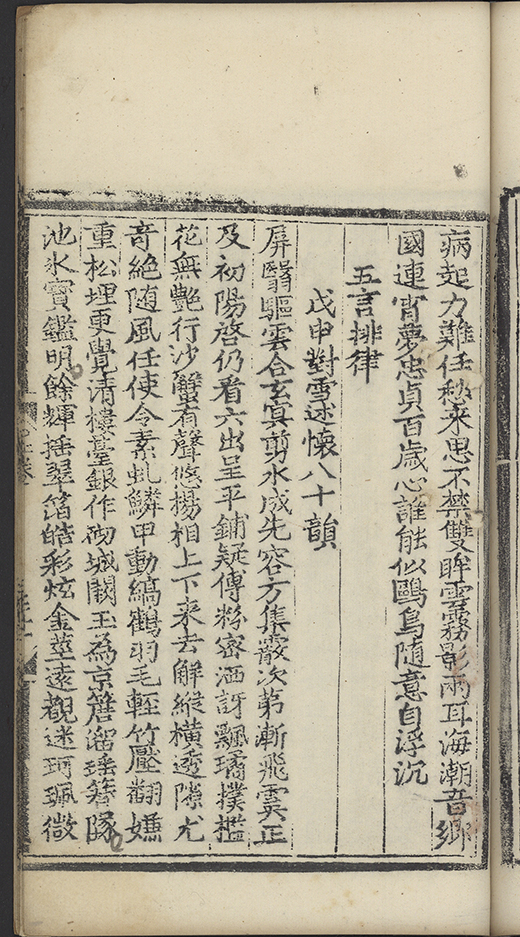 病起力難任秋來思不禁雙眸雲霧影兩耳海潮音鄉
國連宵夢忠貞百歲心誰能似鷗鳥隨意自浮沉
五言排律
戊申對雪述懷八十韻
屏翳驅雲合玄冥剪水成先容方集霰次第漸飛霙正
及初陽啓仍看六出呈平鋪疑傅粉密洒訝飄璚撲檻
花無艶行沙蟹有聲悠揚相上下来去解縱橫透隙尤
奇絶随風任使令素虬鱗甲動縞鶴羽毛輕竹壓翻嫌
重松埋更覺清樓臺銀作砌城闕玉為京簷溜瑶簪隊
池氷寳鑑明餘輝揺翠箔皓彩炫金莖遠觀迷珂珮微